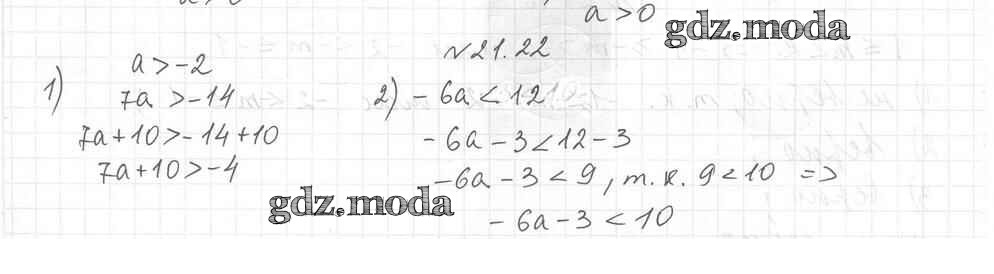 a > 0
gdz.moda
№21.22
1) a > -2
7a > -14
7a + 10 > -14 + 10
7a + 10 > -4
2) - 6a < 12
- 6a - 3 < 12 - 3
- 6a - 3 < 9, т.к. 9 < 10 =>
- 6a - 3 < 10
gdz.moda